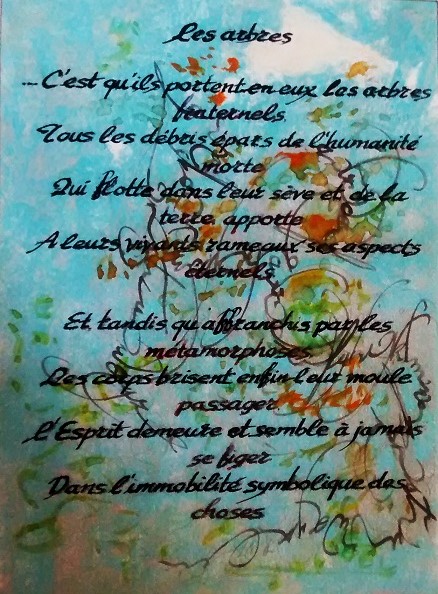 Les arbres
... C'est qu'ils portent en eux les arbres
fraternels
Tous les débris épars de l'humanité
morte
Qui flotte dans leur sève et de la
terre apporte
A leurs vivants rameaux ses aspects
éternels
Et tandis qu'affranchis par les
métamorphoses
Les corps brisent enfin leur moule
passager
L'Esprit demeure et semble à jamais
se figer
Dans l'immobilité symbolique des
choses